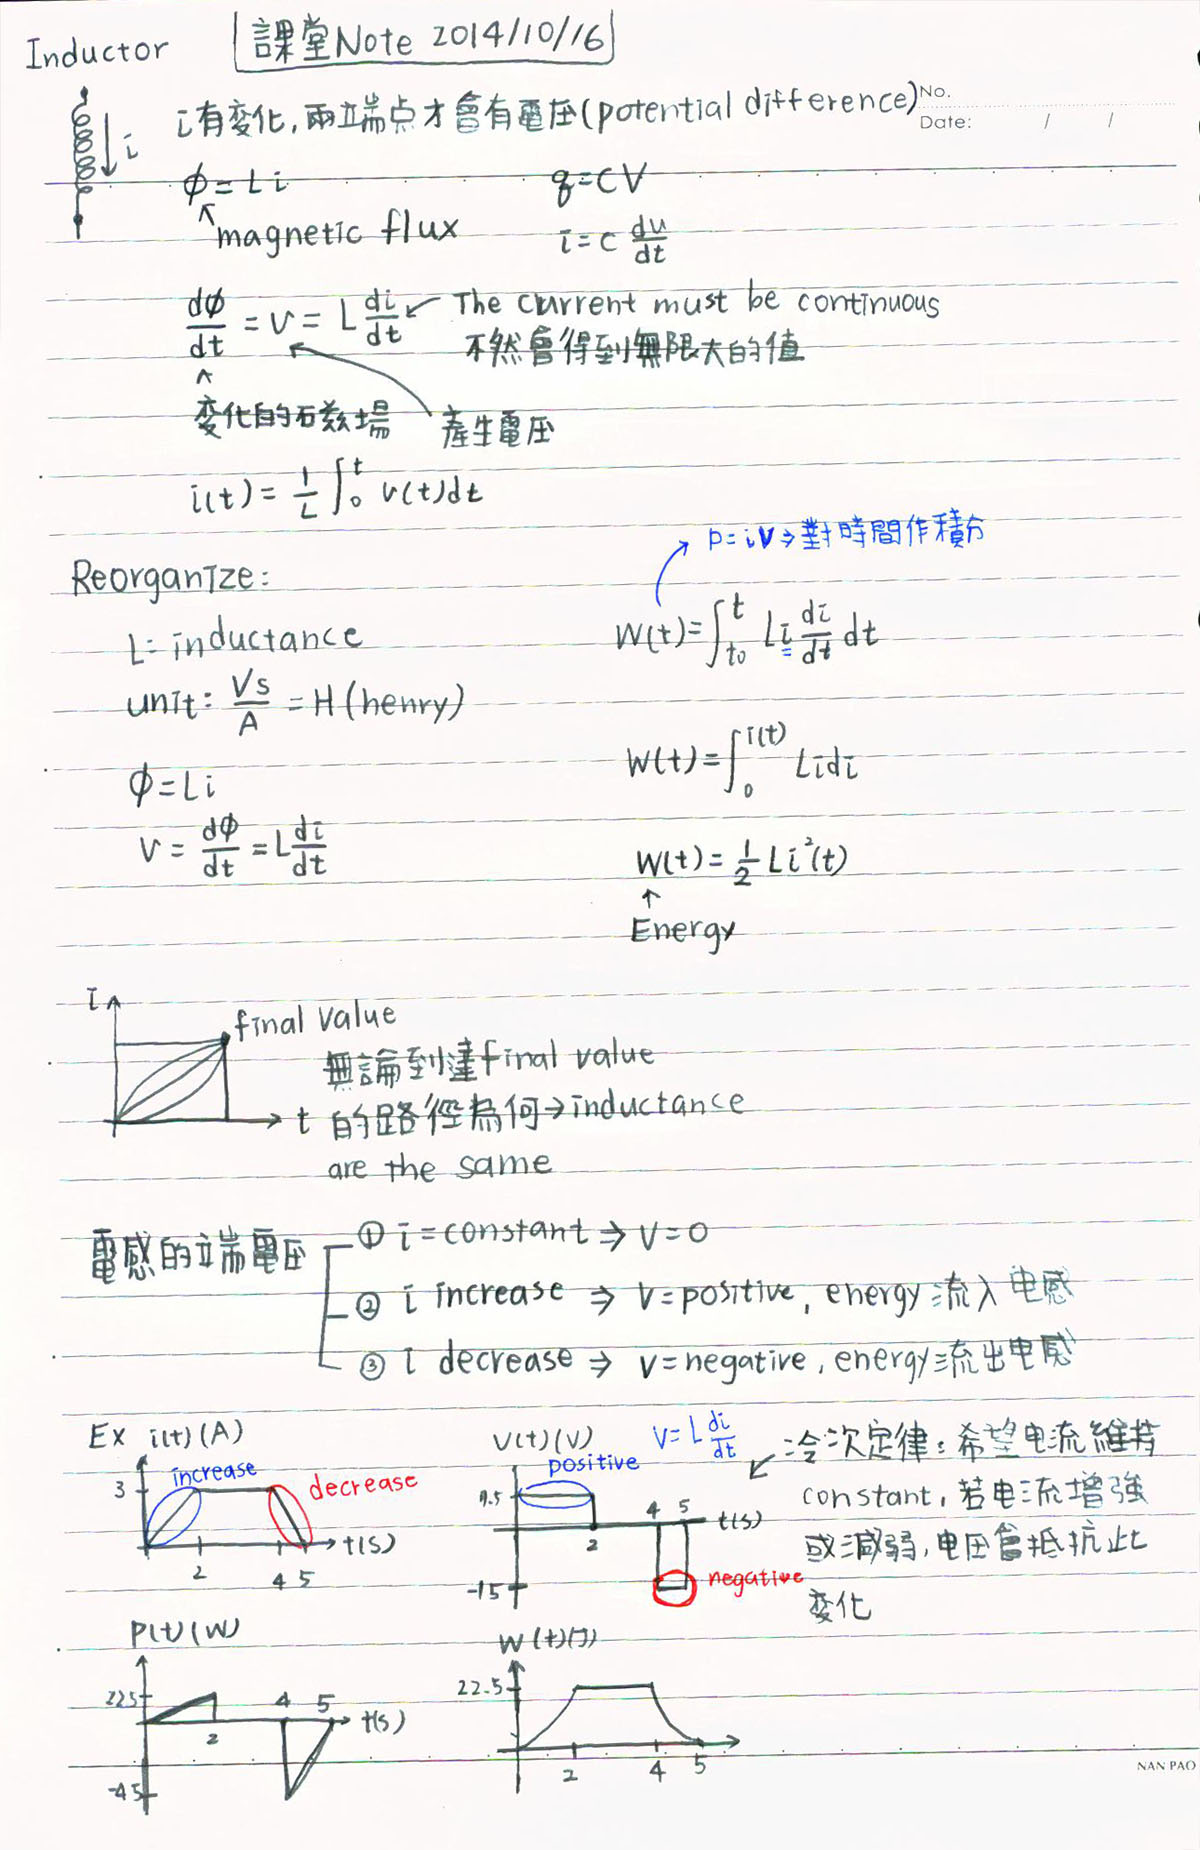 Inductor
課堂Note 2014/10/16
No.
Date: / /
i有变化,兩端点才會有電压(potential difference)
i
φ=Li
q=CV
magnetic flux
i=C dv/dt
dφ/dt = v = L di/dt
The current must be continuous
不然會得到無限大的值
变化的磁場
產生電压
i(t)= 1/L ∫₀ᵗ v(t)dt
P=iV⇒對時間作積分
Reorganize:
L= inductance
W(t)=∫_{t0}^{t} Li di/dt dt
unit: Vs/A = H(henry)
φ=Li
W(t)=∫_0^{i(t)} Lidi
V = dφ/dt = L di/dt
W(t)= 1/2 Li²(t)
Energy
i
final value
t
無論到達final value
的路徑為何→inductance
are the same
電感的端電压
① i=constant ⇒ V=0
② i increase ⇒ V=positive, energy流入电感
③ i decrease ⇒ V=negative, energy流出电感
Ex i(t)(A)
increase
decrease
3
2
4 5
t(s)
V(t)(V)
V=L di/dt
positive
4 5
t(s)
2
-15
negative
冷次定律:希望电流維持
constant,若电流增強
或減弱,电压會抵抗此
变化
P(t)(W)
22.5
4 5
t(s)
2
-45
W(t)(J)
22.5
2 4 5
NAN PAO